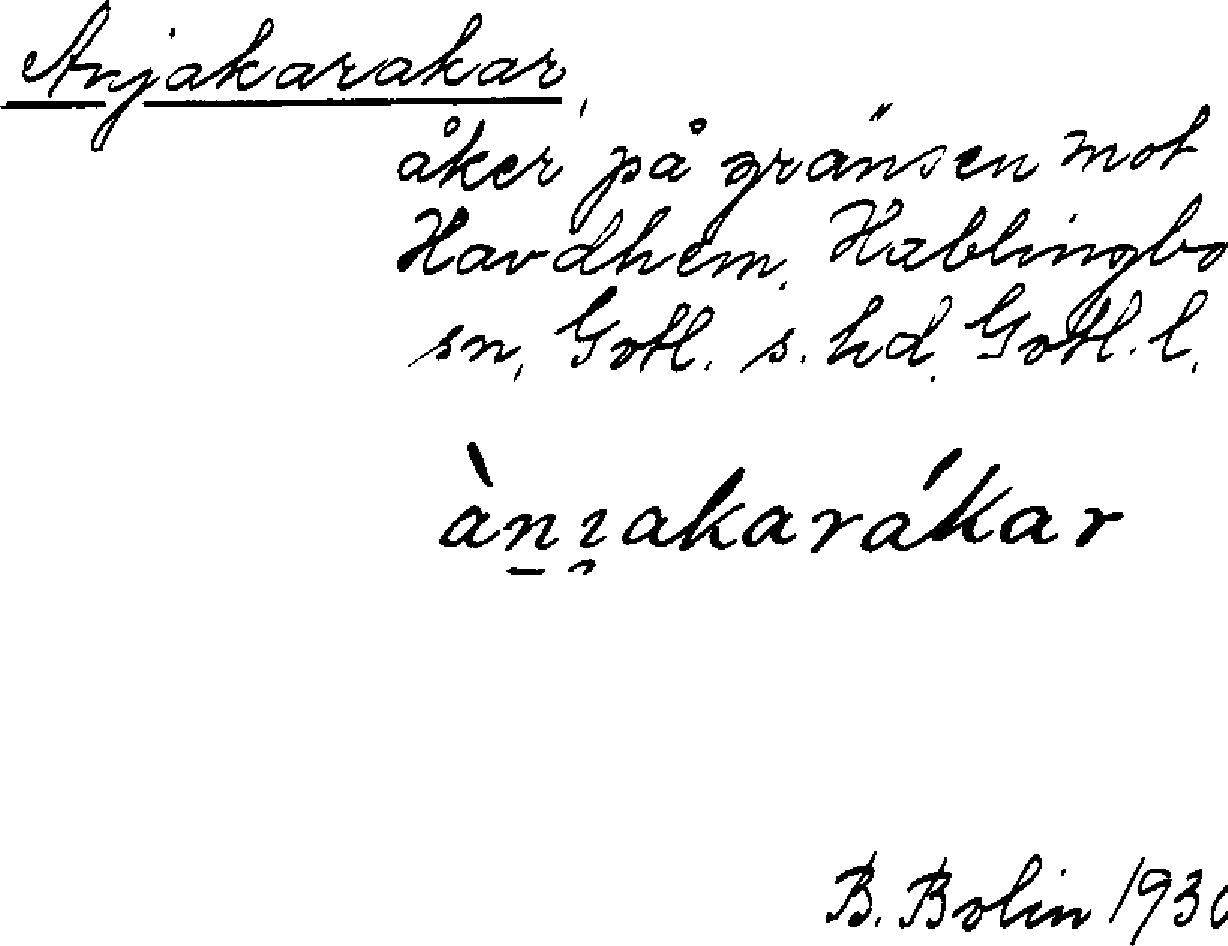 Anjakarakar,
åker på gränsen mot
Havdhem, Hablingbo
sn, Gotl. s. hd. Gotl. l.
àn̠ɿ̯akarákar
B. Bolin 1930